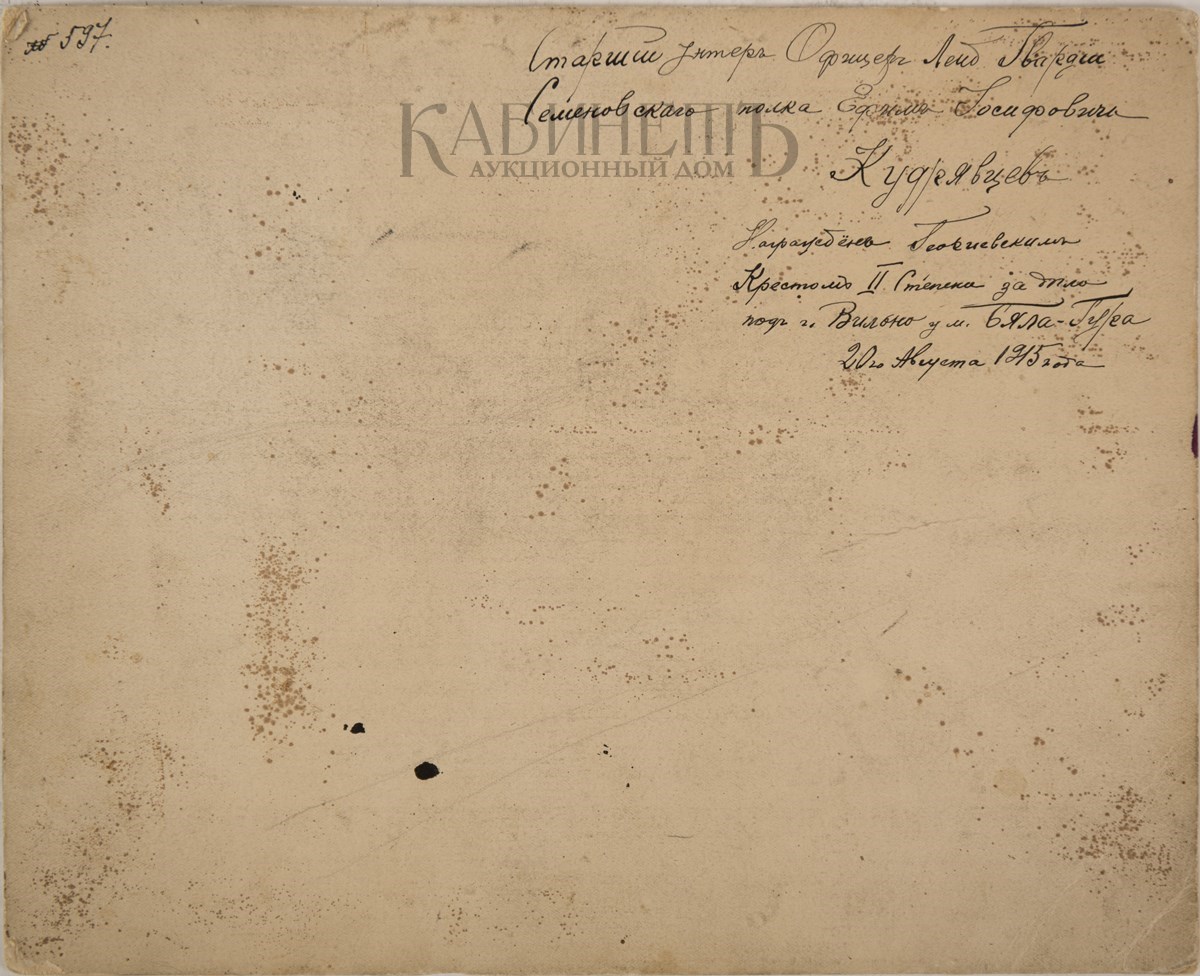 № 597.
Старшiй Унтеръ Офицеръ Лейб Гвардiи
Семеновскаго полка Ефимъ Iосифовичъ
КАБИНЕТЪ
АУКЦИОННЫЙ ДОМ
Кудрявцевъ
Награждёнъ Георгiевскимъ
Крестомъ II Степени за дѣло
подъ г. Вильно у м. Бяла-Гура
20го Августа 1915 года